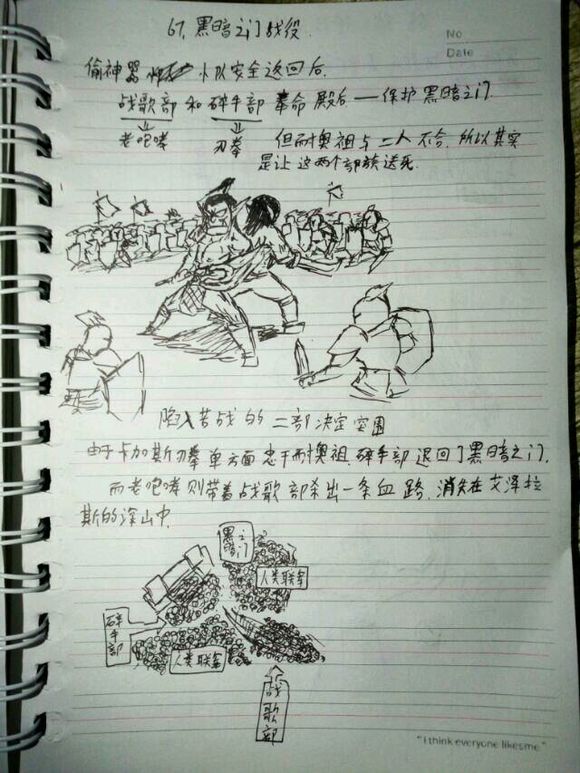 67. 黑暗之门战役.
No
Date
偷神器 小队安全返回后.
战歌部 和 碎手部 奉命 殿后 —— 保护 黑暗之门.
老咆哮 刃拳 但耐奥祖与二人不合, 所以其实
是让这两个部族送死.
陷入苦战的二部决定突围
由于卡加斯刃拳单方面忠于耐奥祖, 碎手部退回了黑暗之门.
而老咆哮则带着战歌部杀出一条血路, 消失在艾泽拉
斯的深山中.
黑暗之门
人类联军
碎手部
人类联军
战歌部
"I think everyone likes me"